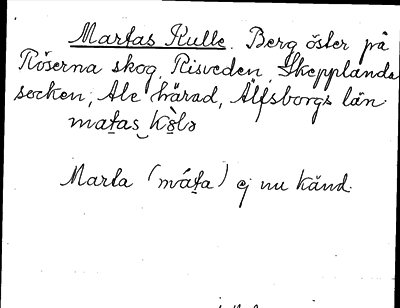 Martas Kulle. Berg öster på
Röserna skog, Risveden, Skepplanda
socken, Ale härad, Älfsborgs län
Marta (máṯa) ej nu känd.